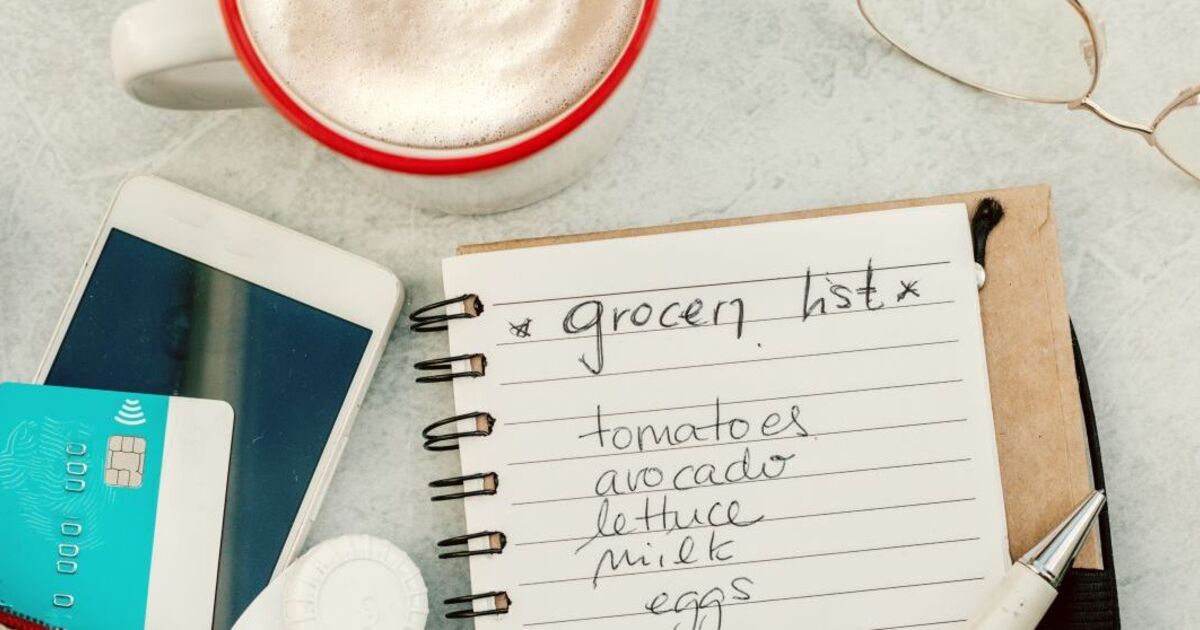 * grocery list *
tomatoes
avocado
lettuce
milk
eggs